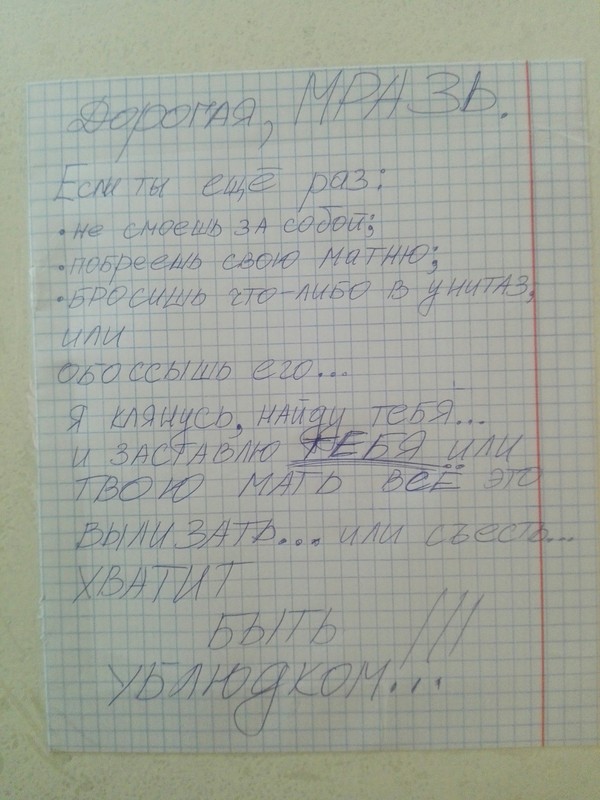 Дорогая, МРАЗЬ.
Если ты ещё раз:
• не смоешь за собой;
• побреешь свою матню;
• БРОСИШЬ что-либо в унитаз,
или
обоссышь его...
я клянусь, найду тебя...
и ЗАСТАВЛЮ ТЕБЯ или
ТВОЮ МАТЬ ВСЁ это
ВЫЛИЗАТЬ... или съесть...
ХВАТИТ
БЫТЬ !!!
УБЛЮДКОМ...